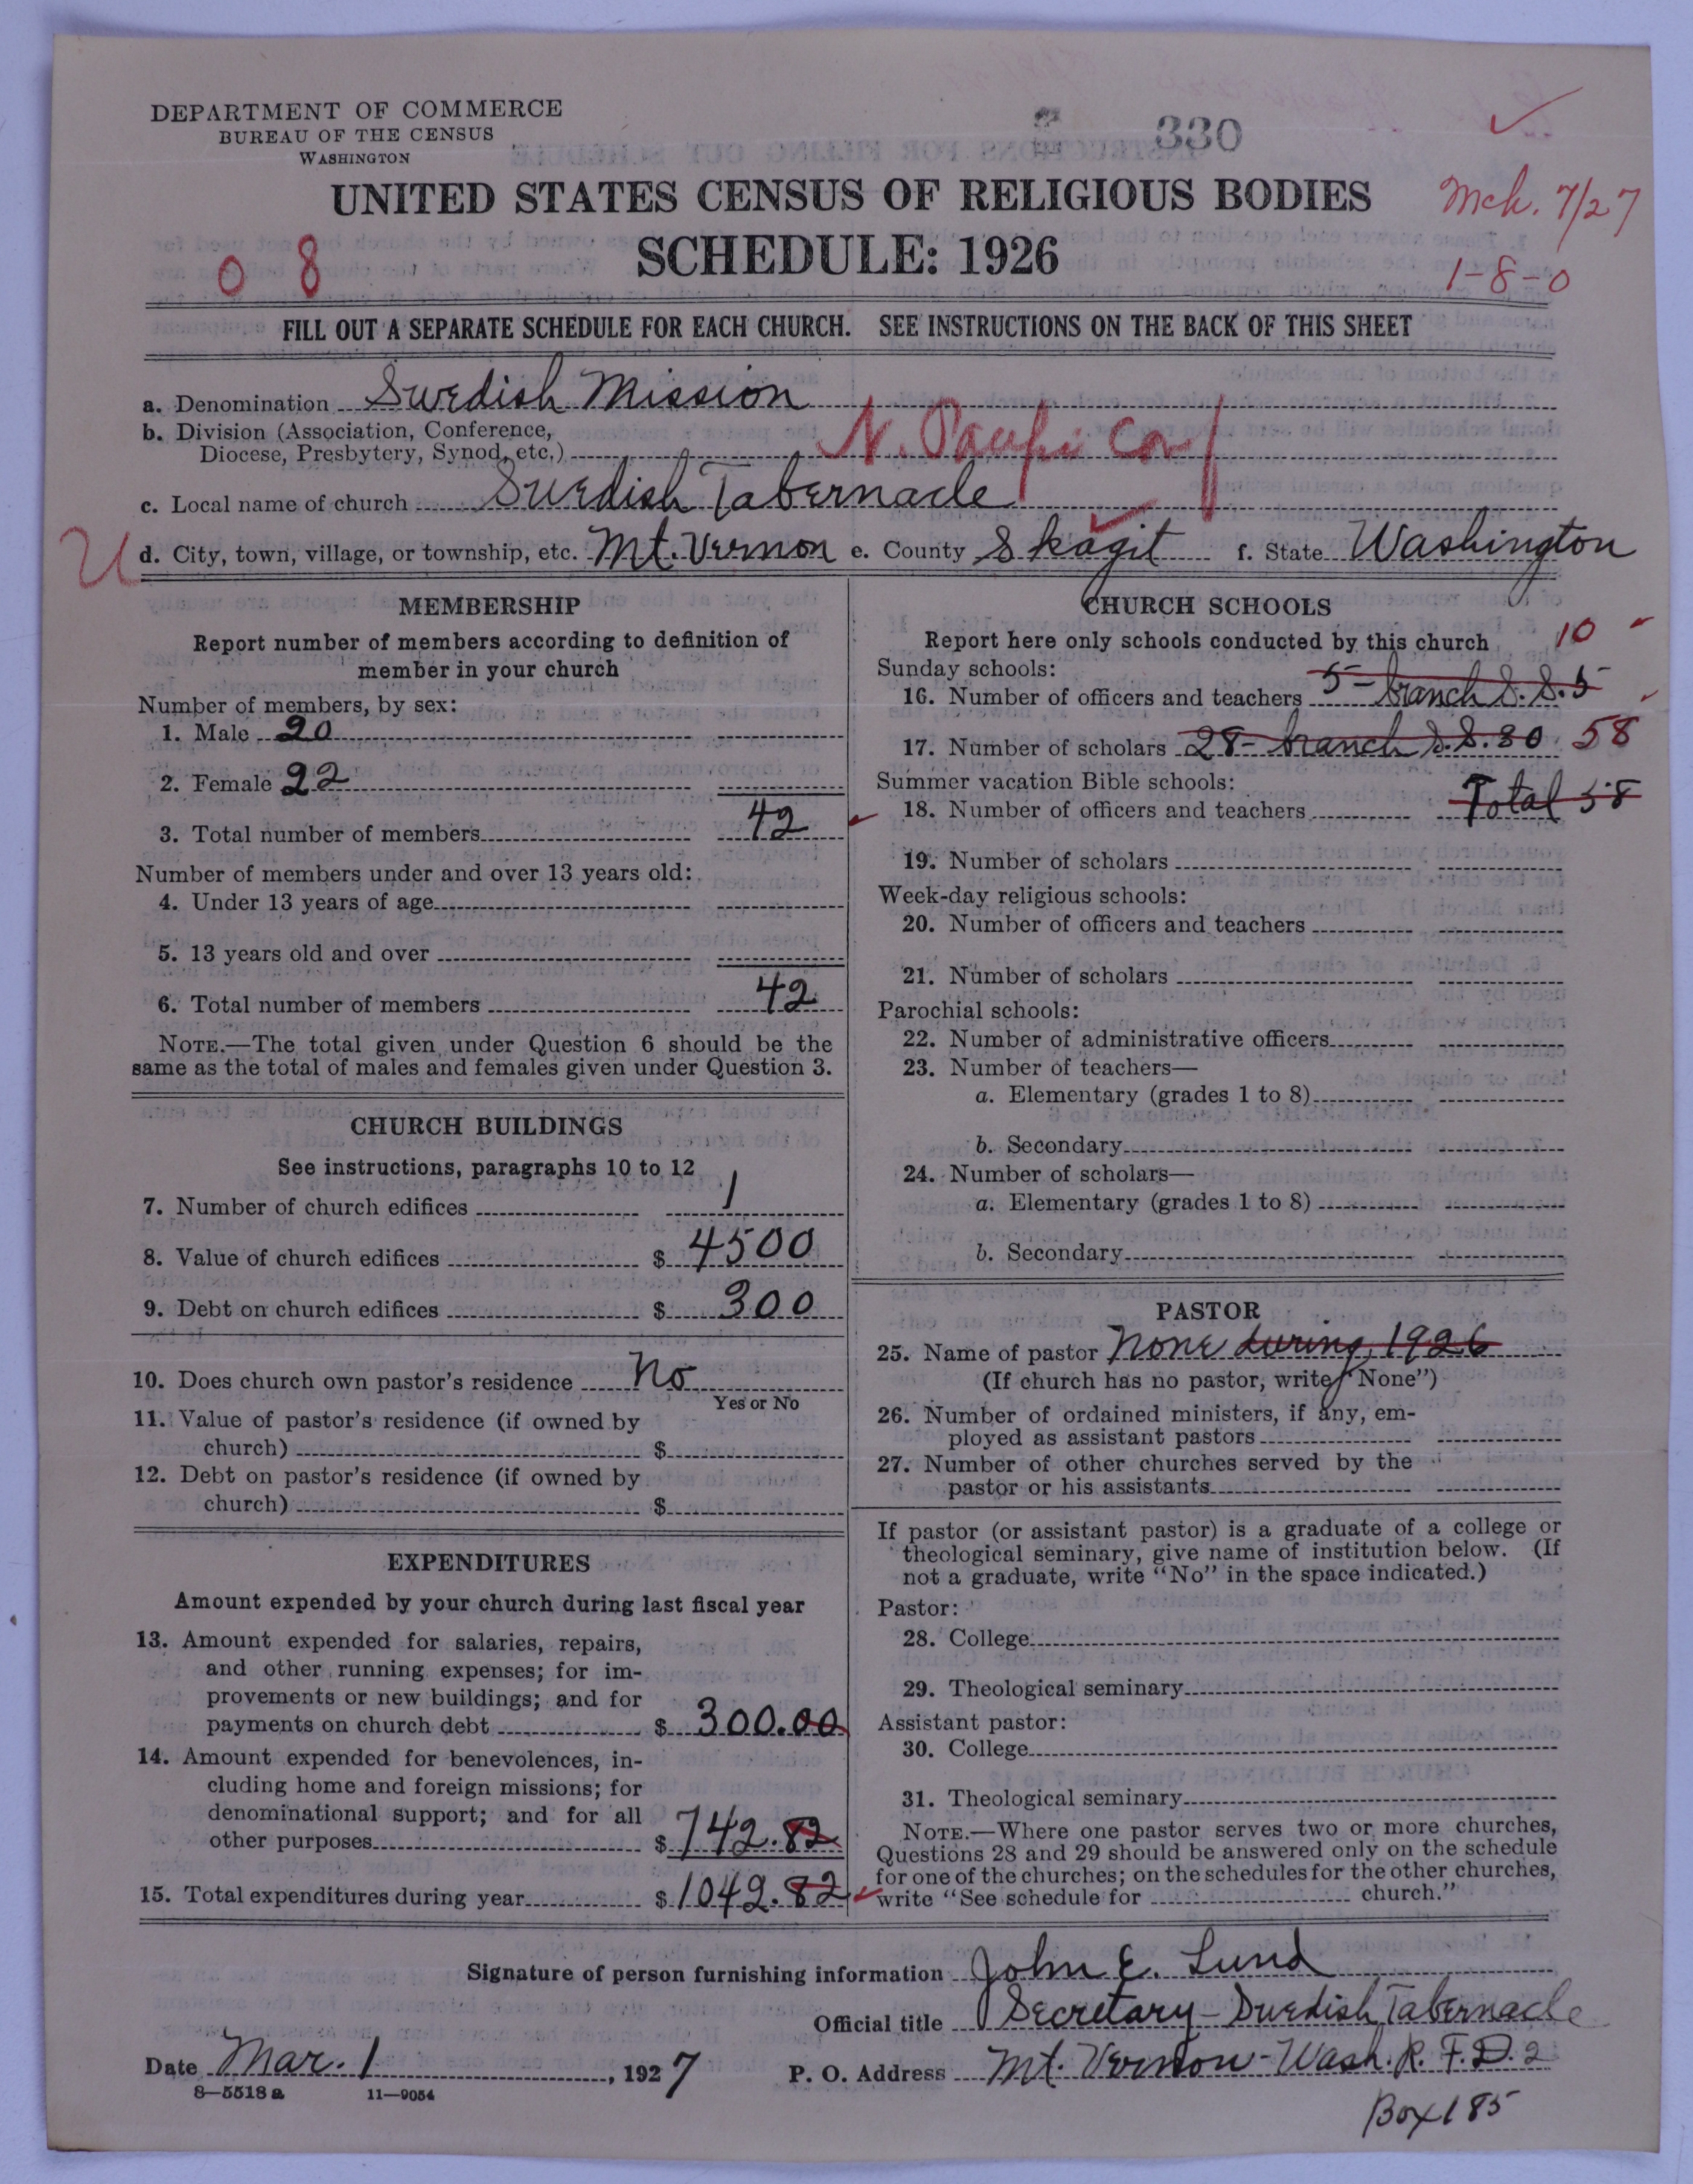 DEPARTMENT OF COMMERCE
BUREAU OF THE CENSUS
WASHINGTON
330
UNITED STATES CENSUS OF RELIGIOUS BODIES
Mch. 7/27
SCHEDULE: 1926
0 8
1-8-0
FILL OUT A SEPARATE SCHEDULE FOR EACH CHURCH. SEE INSTRUCTIONS ON THE BACK OF THIS SHEET
a. Denomination Swedish Mission
b. Division (Association, Conference,
Diocese, Presbytery, Synod, etc.) N.
c. Local name of church Swedish Tabernacle
U d. City, town, village, or township, etc. Mt. Vernon e. County Skagit f. State Washington
MEMBERSHIP
Report number of members according to definition of
member in your church
Number of members, by sex:
1. Male 20
2. Female 22
3. Total number of members 42
Number of members under and over 13 years old:
4. Under 13 years of age
5. 13 years old and over
6. Total number of members 42
NOTE.—The total given under Question 6 should be the
same as the total of males and females given under Question 3.
CHURCH BUILDINGS
See instructions, paragraphs 10 to 12
7. Number of church edifices 1
8. Value of church edifices $ 4500
9. Debt on church edifices $ 300
10. Does church own pastor's residence No
Yes or No
11. Value of pastor's residence (if owned by
church) $
12. Debt on pastor's residence (if owned by
church) $
EXPENDITURES
Amount expended by your church during last fiscal year
13. Amount expended for salaries, repairs,
and other running expenses; for im-
provements or new buildings; and for
payments on church debt $ 300.00
14. Amount expended for benevolences, in-
cluding home and foreign missions; for
denominational support; and for all
other purposes $ 742.82
15. Total expenditures during year $ 1042.82
CHURCH SCHOOLS
Report here only schools conducted by this church 10
Sunday schools:
16. Number of officers and teachers 5 - branch S.S. 5
17. Number of scholars 28 - branch S.S. 30 58
Summer vacation Bible schools: Total 58
18. Number of officers and teachers
19. Number of scholars
Week-day religious schools:
20. Number of officers and teachers
21. Number of scholars
Parochial schools:
22. Number of administrative officers
23. Number of teachers—
a. Elementary (grades 1 to 8)
b. Secondary
24. Number of scholars—
a. Elementary (grades 1 to 8)
b. Secondary
PASTOR
25. Name of pastor None during 1926
(If church has no pastor, write "None")
26. Number of ordained ministers, if any, em-
ployed as assistant pastors
27. Number of other churches served by the
pastor or his assistants
If pastor (or assistant pastor) is a graduate of a college or
theological seminary, give name of institution below. (If
not a graduate, write "No" in the space indicated.)
Pastor:
28. College
29. Theological seminary
Assistant pastor:
30. College
31. Theological seminary
NOTE.—Where one pastor serves two or more churches,
Questions 28 and 29 should be answered only on the schedule
for one of the churches; on the schedules for the other churches,
write "See schedule for church."
Signature of person furnishing information John E. Lund
Official title Secretary - Swedish Tabernacle
Date Mar. 1, 1927 P. O. Address Mt. Vernon - Wash. R. F. D. 2
8—5518 a 11—9054
Box 185